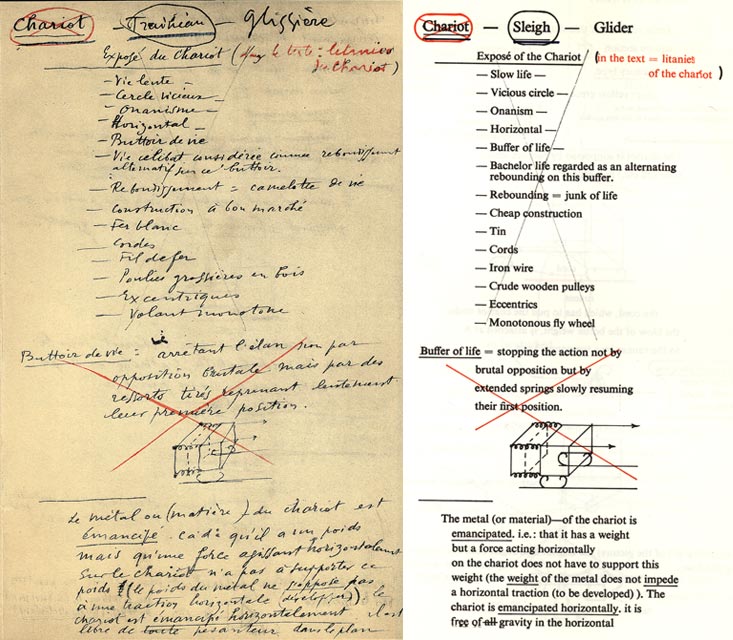 Chariot — Traîneau — Glissière
Exposé du Chariot (dans le texte : litanies
du Chariot)
— Vie lente —
— Cercle vicieux —
— Onanisme —
— Horizontal —
— Buttoir de vie
— Vie célibat considérée comme rebondissement
alternatif sur ce buttoir.
— Rebondissement = camelotte de vie
— Construction à bon marché
— Fer blanc
— Cordes
— Fil de fer
— Poulies grossières en bois
— Excentriques
— Volant monotone
Buttoir de vie = arrêtant l'élan non par
opposition brutale mais par des
ressorts tirés reprenant lentement
leur première position.
Le métal ou (matière) du chariot est
émancipé. c à d qu'il a un poids
mais qu'une force agissant horizontalement
sur le chariot n'a pas à supporter ce
poids ((le poids du metal ne s'oppose pas
à une traction horizontale (développer)) le
chariot est émancipé horizontalement il est
libre de toute pesanteur dans le plan
Chariot — Sleigh — Glider
Exposé of the Chariot (in the text = litanies
of the chariot )
— Slow life —
— Vicious circle —
— Onanism —
— Horizontal —
— Buffer of life —
— Bachelor life regarded as an alternating
rebounding on this buffer.
— Rebounding = junk of life
— Cheap construction
— Tin
— Cords
— Iron wire
— Crude wooden pulleys
— Eccentrics
— Monotonous fly wheel
Buffer of life = stopping the action not by
brutal opposition but by
extended springs slowly resuming
their first position.
The metal (or material)—of the chariot is
emancipated. i.e.: that it has a weight
but a force acting horizontally
on the chariot does not have to support this
weight (the weight of the metal does not impede
a horizontal traction (to be developed) ). The
chariot is emancipated horizontally. it is
free of all gravity in the horizontal